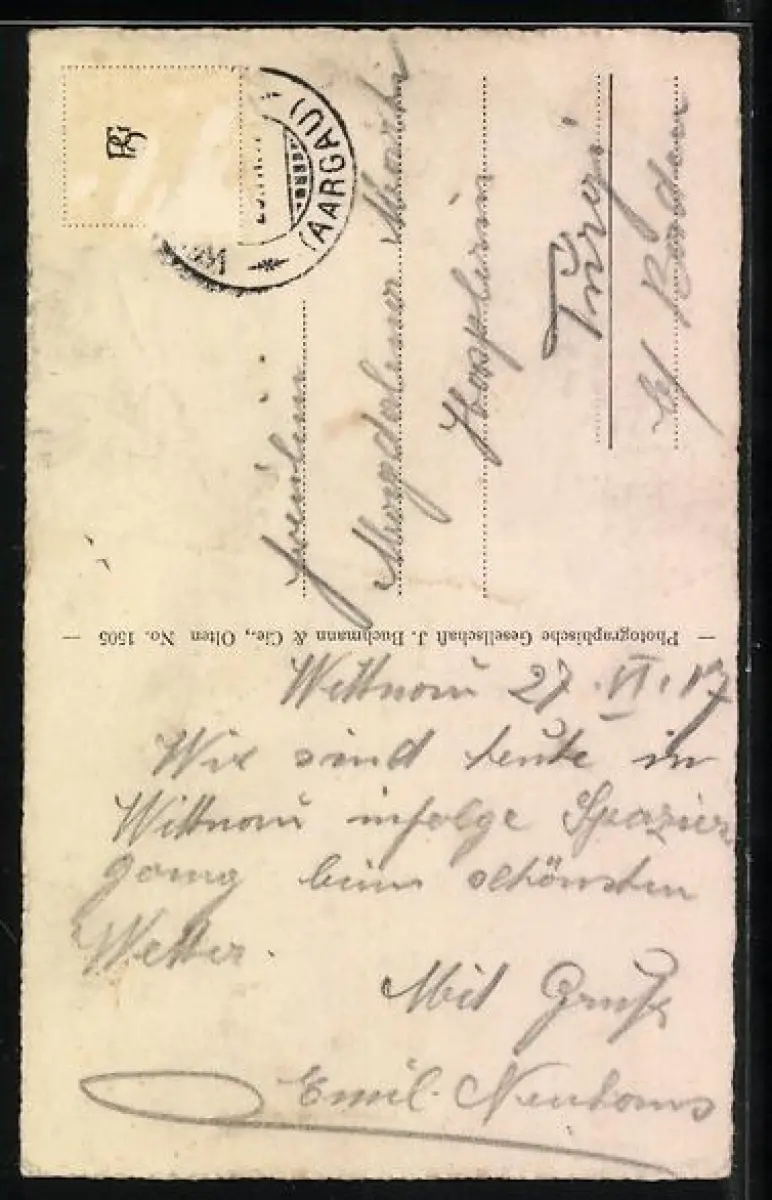 (AARGAU)
Fräulein
Magdalena
Turgi
b/ Baden
— Photographische Gesellschaft J. Buchmann & Cie., Olten No. 1505 —
Wittnau 27. VI. 17
Wir sind heute in
Wittnau infolge Spazier
gang beim schönsten
Wetter.
Mit Gruß
Emil Neuhaus